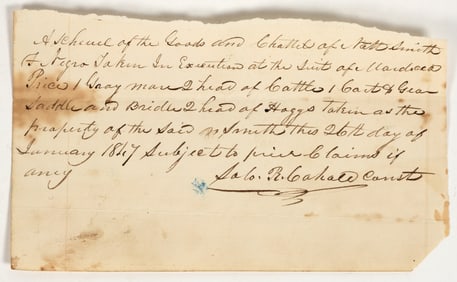 A Scheuel of the Goods and Chattel of Natt Smith
F Negro Taken In Execution at the Sut of
Price 1 Gray mare 2 head of Cattle 1 Cart & Gear
Saddle and Bridle 2 head of Hoggs taken as the
property of the Said n Smith this 26th day of
January 1847 Subject to prier Claims if
any
Solo. R. Cahall Const